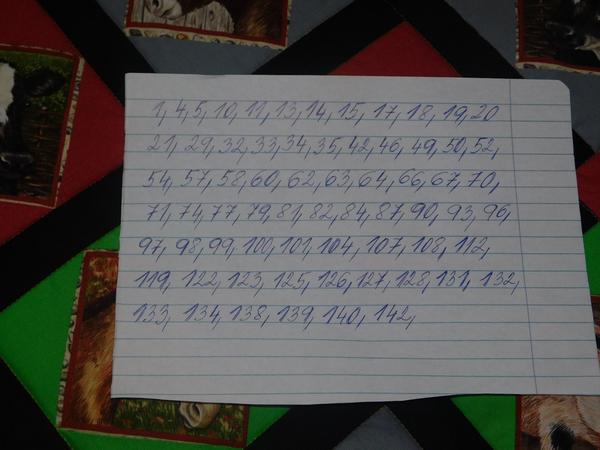 1, 4, 5, 10, 11, 13, 14, 15, 17, 18, 19, 20
21, 29, 32, 33, 34, 35, 42, 46, 49, 50, 52,
54, 57, 58, 60, 62, 63, 64, 66, 67, 70,
71, 74, 77, 79, 81, 82, 84, 87, 90, 93, 96,
97, 98, 99, 100, 101, 104, 107, 108, 112,
119, 122, 123, 125, 126, 127, 128, 131, 132,
133, 134, 138, 139, 140, 142,